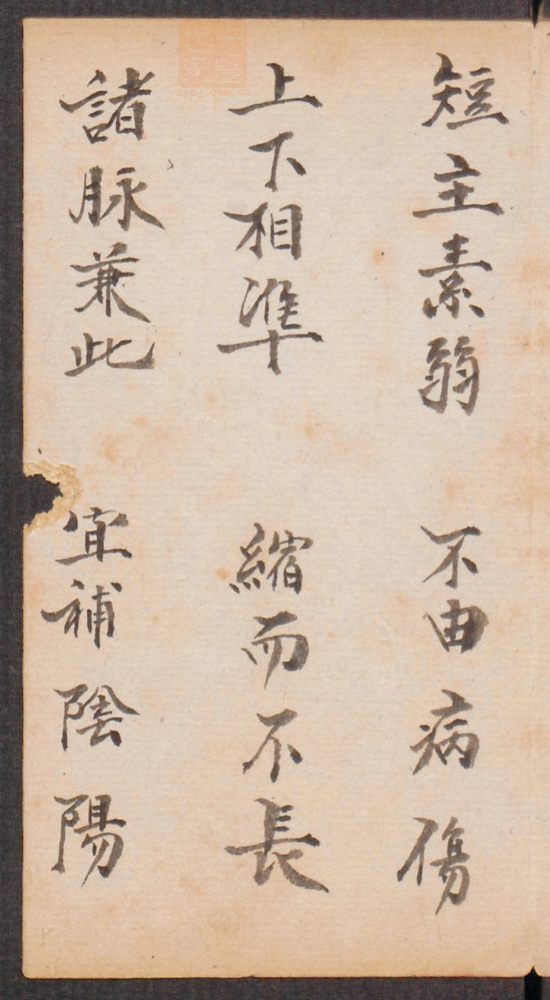 短主素弱　不由病傷
上下相準　縮而不長
諸脉兼此　宜補陰陽